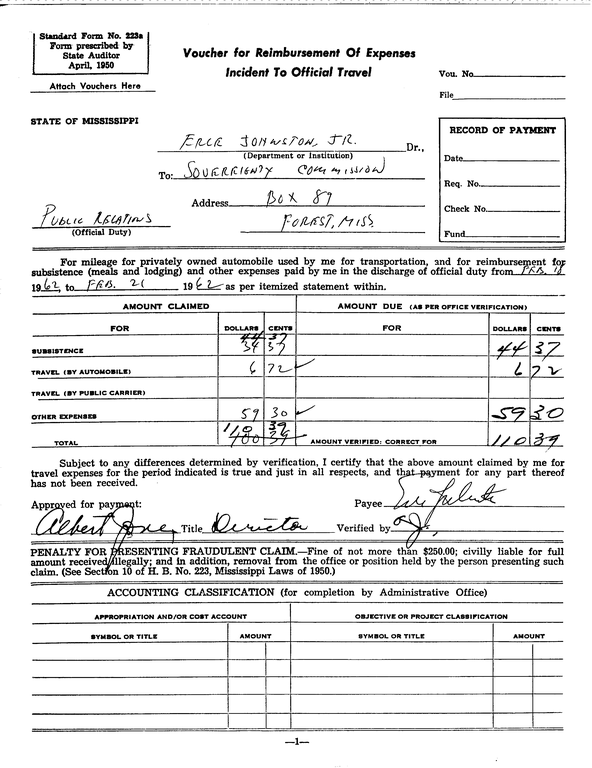 Standard Form No. 223a
Form prescribed by
State Auditor
April, 1950
Attach Vouchers Here
Voucher for Reimbursement Of Expenses
Incident To Official Travel
Vou. No.
File
STATE OF MISSISSIPPI
ERLE JOHNSTON, JR. Dr.,
(Department or Institution)
To: SOVEREIGNTY COMMISSION
Address BOX 89
FOREST, MISS.
PUBLIC RELATIONS
(Official Duty)
RECORD OF PAYMENT
Date
Req. No.
Check No.
Fund
For mileage for privately owned automobile used by me for transportation, and for reimbursement for
subsistence (meals and lodging) and other expenses paid by me in the discharge of official duty from FEB. 18
1962, to FEB. 21 1962 as per itemized statement within.
AMOUNT CLAIMED AMOUNT DUE (AS PER OFFICE VERIFICATION)
FOR DOLLARS CENTS FOR DOLLARS CENTS
44 37
SUBSISTENCE 34 37 44 37
TRAVEL (BY AUTOMOBILE) 6 72 6 72
TRAVEL (BY PUBLIC CARRIER)
OTHER EXPENSES 59 30 59 30
110 39
TOTAL 100 39 AMOUNT VERIFIED: CORRECT FOR 110 39
Subject to any differences determined by verification, I certify that the above amount claimed by me for
travel expenses for the period indicated is true and just in all respects, and that payment for any part thereof
has not been received.
Approved for payment: Payee Erle Johnston
Albert Jones, Title Director Verified by
PENALTY FOR PRESENTING FRAUDULENT CLAIM.—Fine of not more than $250.00; civilly liable for full
amount received illegally; and in addition, removal from the office or position held by the person presenting such
claim. (See Section 10 of H. B. No. 223, Mississippi Laws of 1950.)
ACCOUNTING CLASSIFICATION (for completion by Administrative Office)
APPROPRIATION AND/OR COST ACCOUNT OBJECTIVE OR PROJECT CLASSIFICATION
SYMBOL OR TITLE AMOUNT SYMBOL OR TITLE AMOUNT
—1—